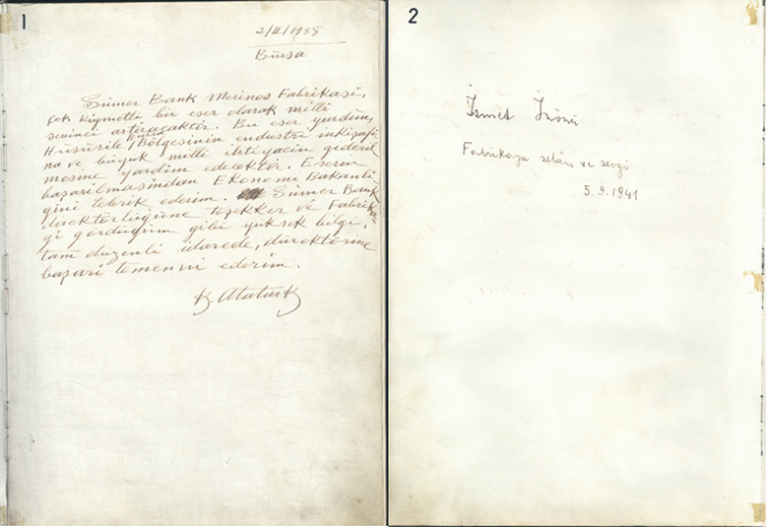 1
2/II/1938
Bursa
Sümer Bank Merinos Fabrikası,
çok kıymetli bir eser olarak milli
sevinci artıracaktır. Bu eser yurdun,
Hususile Bursa Bölgesinin endüstri inkişafı
na ve büyük milli ihtiyacın gideril
mesine yardım edecektir. Eserin
başarılmasından Ekonomi Bakanlı
ğını tebrik ederim. Sümer Bank
direktörlüğüne teşekkür ve Fabrika
yı gördüğüm gibi yüksek bilgi,
tam düzenli idarede, direktörüne
başarı temenni ederim.
K. Atatürk
2
İsmet İnönü
Fabrikaya selâm ve sevgi
5.9.1941